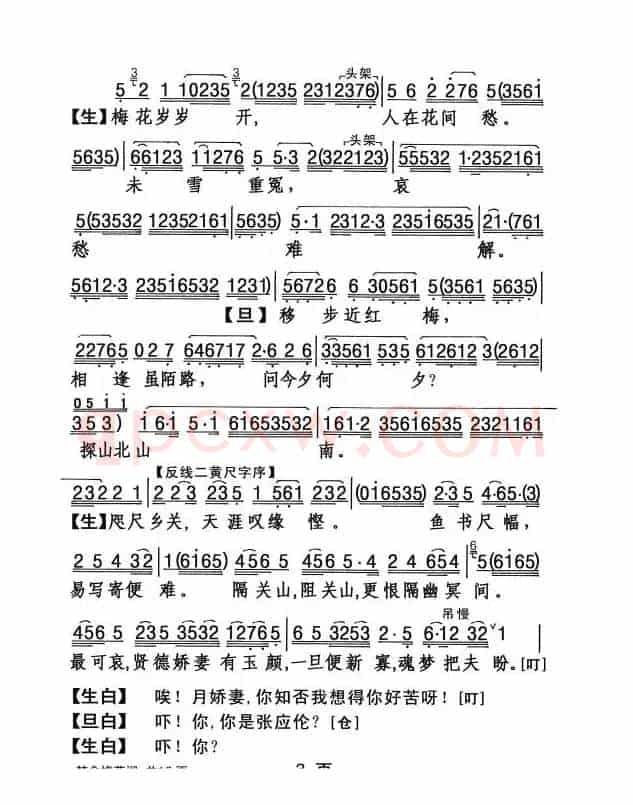 头架
5 2 1 10235 2(1235 2312376)|5 6 2 276 5(3561
【生】梅花岁岁 开, 人在花间 愁。
头架
5635)|66123 11276 5 5·3 2(322123)|55532 1·2352161
未 雪 重冤, 哀
5(53532 12352161|5635) 5·1 2312·3 235i6535|21·(761
愁 难 解。
5612·3 235i6532 1231)|56726 6 30561 5(3561 5635)
【旦】移 步近红 梅,
22765 027 646717 2·626|33561 535 612612 3(2612
相 逢 虽陌路, 问今夕何 夕?
05 i i
353) i 6·i 5·i 61653532|161·2 35616535 2321161
探山北山 南。
【反线二黄尺字序】
2322 1|223 235 1 561 232|(016535) 2·35 4·65·(3)
【生】咫尺乡关, 天涯叹缘 悭。 鱼书尺幅,
2 5 4 32|1(6165) 456 5 456 5·4 24 654|5(6165)
易写寄便 难。 隔关山,阻关山,更恨隔幽冥间。
吊慢
456 5 235 3532 1235 2165|5 65 3253 2·5 6·12 32 1
最可哀,贤德娇妻 有玉颜,一旦便新 寡,魂梦把夫 盼。[叮]
【生白】 唉！月娇妻,你知否我想得你好苦呀！[叮]
【旦白】 吓！你,你是张应伦？[仓]
【生白】 吓！你？
qpcxw.com